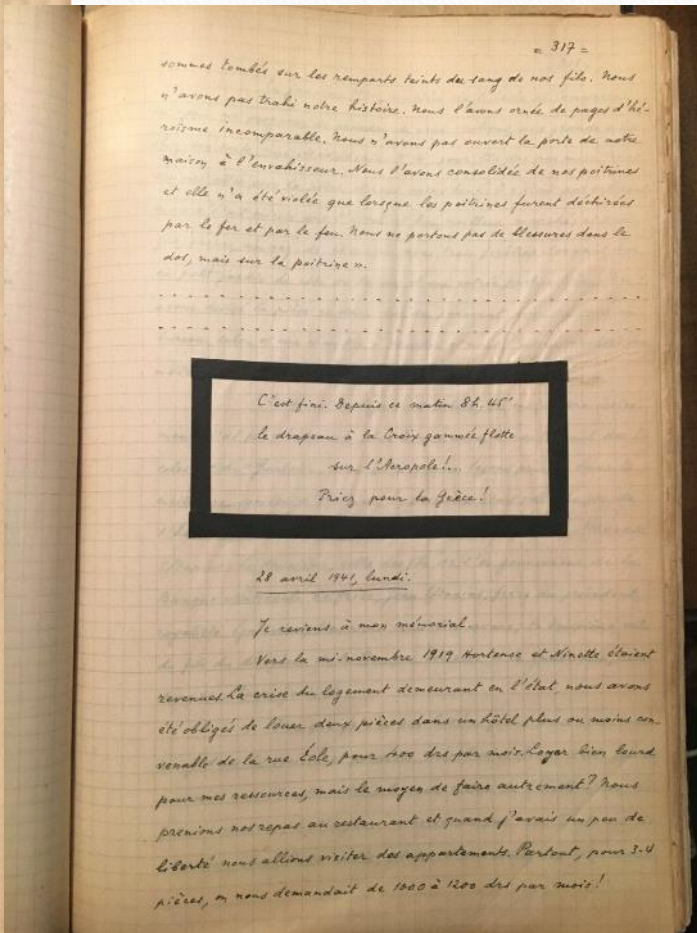 = 317 =
sommes tombés sur les remparts teints du sang de nos fils. Nous
n'avons pas trahi notre histoire. Nous l'avons ornée de pages d'hé-
roïsme incomparable. Nous n'avons pas ouvert la porte de notre
maison à l'envahisseur. Nous l'avons consolidée de nos poitrines
et elle n'a été violée que lorsque les poitrines furent déchirées
par le fer et par le feu. Nous ne portons pas de blessures dans le
dos, mais sur la poitrine ».
C'est fini. Depuis ce matin 8h. 45'
le drapeau à la Croix gammée flotte
sur l'Acropole!..
Priez pour la Grèce!
28 avril 1941, lundi.
Je reviens à mon mémorial.
Vers la mi-novembre 1919 Hortense et Ninette étaient
revenues. La crise du logement demeurant en l'état, nous avons
été obligés de louer deux pièces dans un hôtel plus ou moins con-
venable de la rue Éole, pour drs par mois. Loyer bien lourd
pour mes ressources, mais le moyen de faire autrement? Nous
prenions nos repas au restaurant et quand j'avais un peu de
liberté nous allions visiter des appartements. Partout, pour 3-4
pièces, on nous demandait de 1000 à 1200 drs par mois!